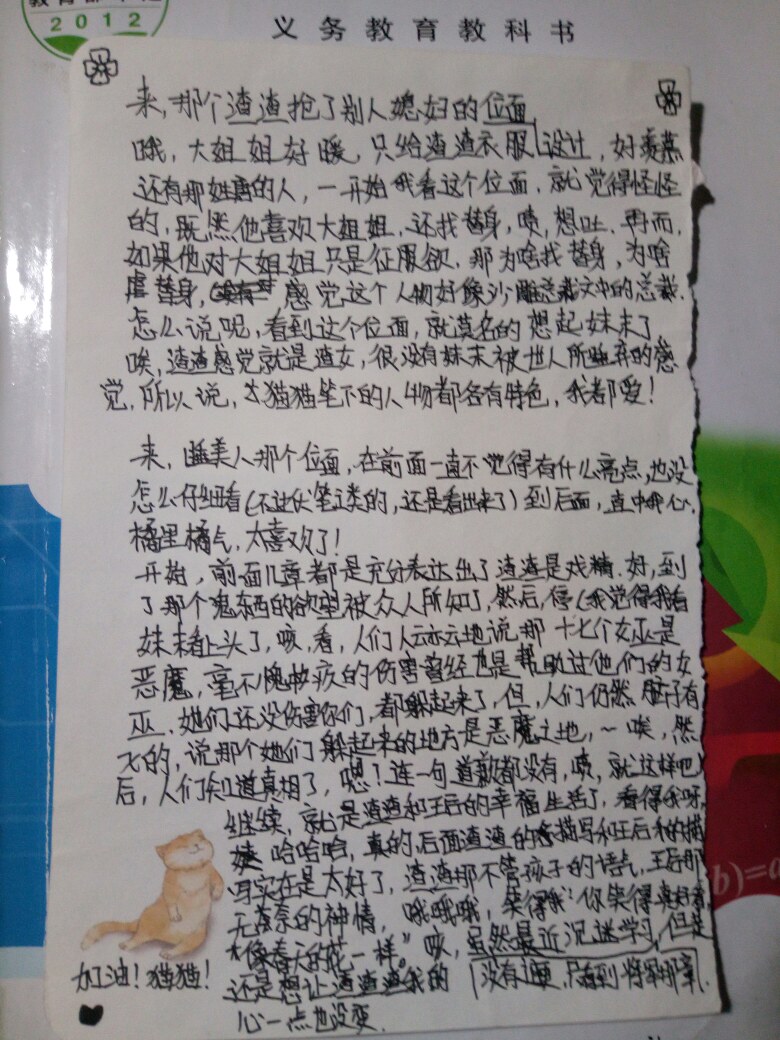 2012
义务教育教科书
来,那个渣渣抢了别人媳妇的位面
哦,大姐姐好暖,只给渣渣衣服设计,好羡慕
还有那姓唐的人,一开始我看这个位面,就觉得怪怪
的,既然他喜欢大姐姐,还找替身,啧,想吐.再而,
如果他对大姐姐只是征服欲.那为啥找替身,为啥
虐替身,感觉这个人物好像沙雕总裁文中的总裁.
怎么说呢,看到这个位面,就莫名的想起妹末了
唉,渣渣感觉就是渣女,很没有妹末被世人所唾弃的感
觉,所以说,大猫猫笔下的人物都各有特色,我都爱!
来,睡美人那个位面,在前面一直不觉得有什么亮点,也没
怎么仔细看(不过伏笔之类的,还是看出来了)到后面,直中我心,
橘里橘气,太喜欢了!
开始,前面几章都是充分表达出了渣渣是戏精.好,到
了那个鬼东西的欲望被众人所知了,然后,停(我觉得我看
妹末看上头了,咳,看,人们人云亦云地说那十七个女巫是
恶魔,毫不愧疚的伤害曾经也是帮助过他们的女
巫.她们还没伤害你们,都躲起来了,但,人们仍然
的,说那个她们躲起来的地方是恶魔之地,~唉,然
后,人们知道真相了,嗯?连一句道歉都没有,啧,就这样吧)
继续,就是渣渣和王后的幸福生活了,看得我呀,
哈哈哈,真的,后面渣渣的描写和王后的描
写实在是太好了,渣渣那不管孩子的语气,王后那
无奈的神情,哦哦哦,笑得我“你笑得真好看,
像春天的花一样。”咳,虽然最近沉迷学习,但是
还是想让渣渣渣我的
心一点也没变.
没有追更,只看到将军那章.
加油!猫猫!
b)=a